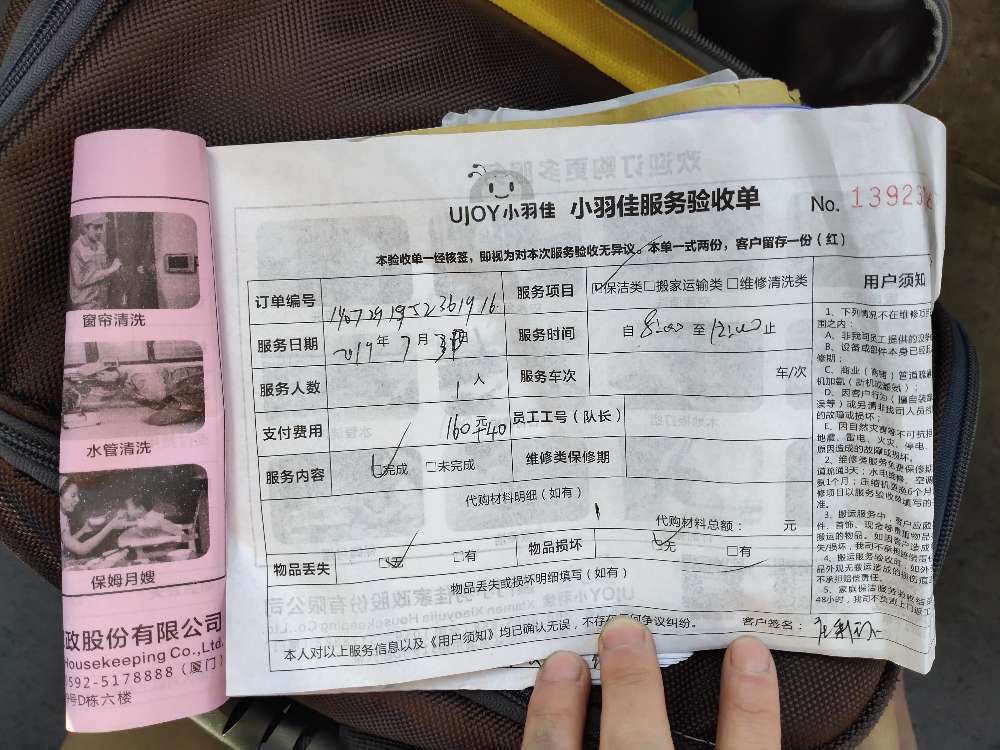 UJOY小羽佳 小羽佳服务验收单 No. 13923
本验收单一经核签，即视为对本次服务验收无异议。本单一式两份，客户留存一份（红）
订单编号
服务项目 ☑保洁类□搬家运输类□维修清洗类
服务日期 2019年 7月 日
服务时间 自 8:00 至 12:00 止
服务人数 1 人
服务车次 车/次
支付费用 160平40
员工工号（队长）
服务内容 ☑完成 □未完成
维修类保修期
代购材料明细（如有）
代购材料总额： 元
物品丢失 ☑无 □有
物品损坏 ☑无 □有
物品丢失或损坏明细填写（如有）
本人对以上服务信息以及《用户须知》均已确认无误，不存 何争议纠纷。
客户签名：
用户须知
1、下列情况不在维修项
围之内：
A、非我司员工提供的
B、设备或部件本身已经
修期；
C、商业（商铺）管道疏
机加氨（新机或
D、因客户行为（擅自装
误等）或另请非我司人员
的故障或损坏；
E、因自然灾害等不可抗
地震、雷电、火灾、停电、
原因造成的故障或损坏。
2、维修类服务免费保修期
道疏通3天；水电维修、空调
氨1个月；压缩机更换6个月
修项目以服务验收单填写的
准。
3、搬运服务中，客户应
件、首饰、现金等贵重物品
搬运的物品。如因客户造成
失/损坏，我司不承担
4、搬运服务验收时，如外
品外观无搬运造成的损伤
不承担赔偿责任。
5、家庭保洁服务验收结
48小时，我司不负责上门返工
窗帘清洗
水管清洗
保姆月嫂
政股份有限公司
Housekeeping Co.,Ltd.
0592-5178888（厦门）
号D栋六楼